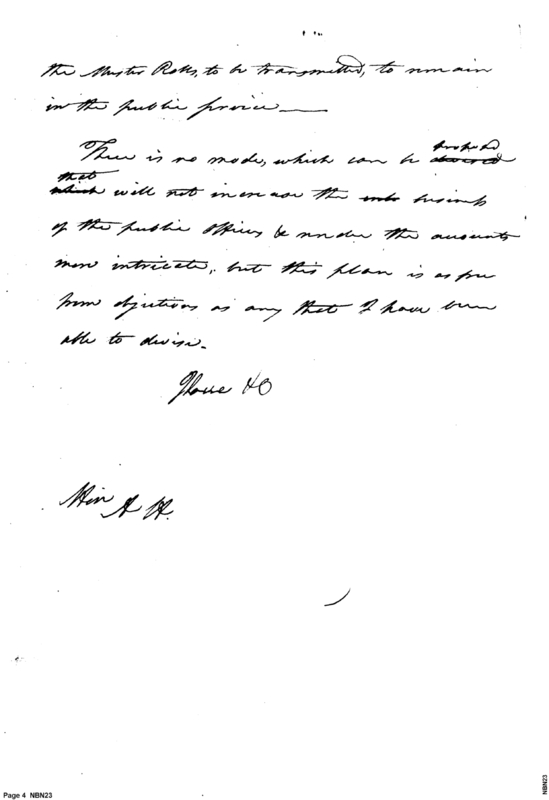 the Muster Rolls, to be transmitted, to remain
in the public service
There is no mode, which can be proposed
that
which will not increase the business
of the public offices & render the accounts
more intricate, but this plan is as free
from objections as any that I have been
able to devise.
A H.
Page 4 NBN23
NBN23